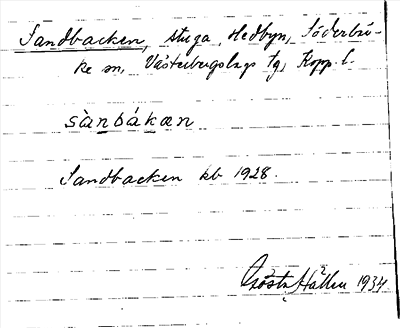 Sandbacken, stuga, Hedbyn, Söderbär-
ke sn, Västerbergslags tg, Kopp. l.
sànbákæn
Sandbacken kb 1928.
Gösta Hallén 1934